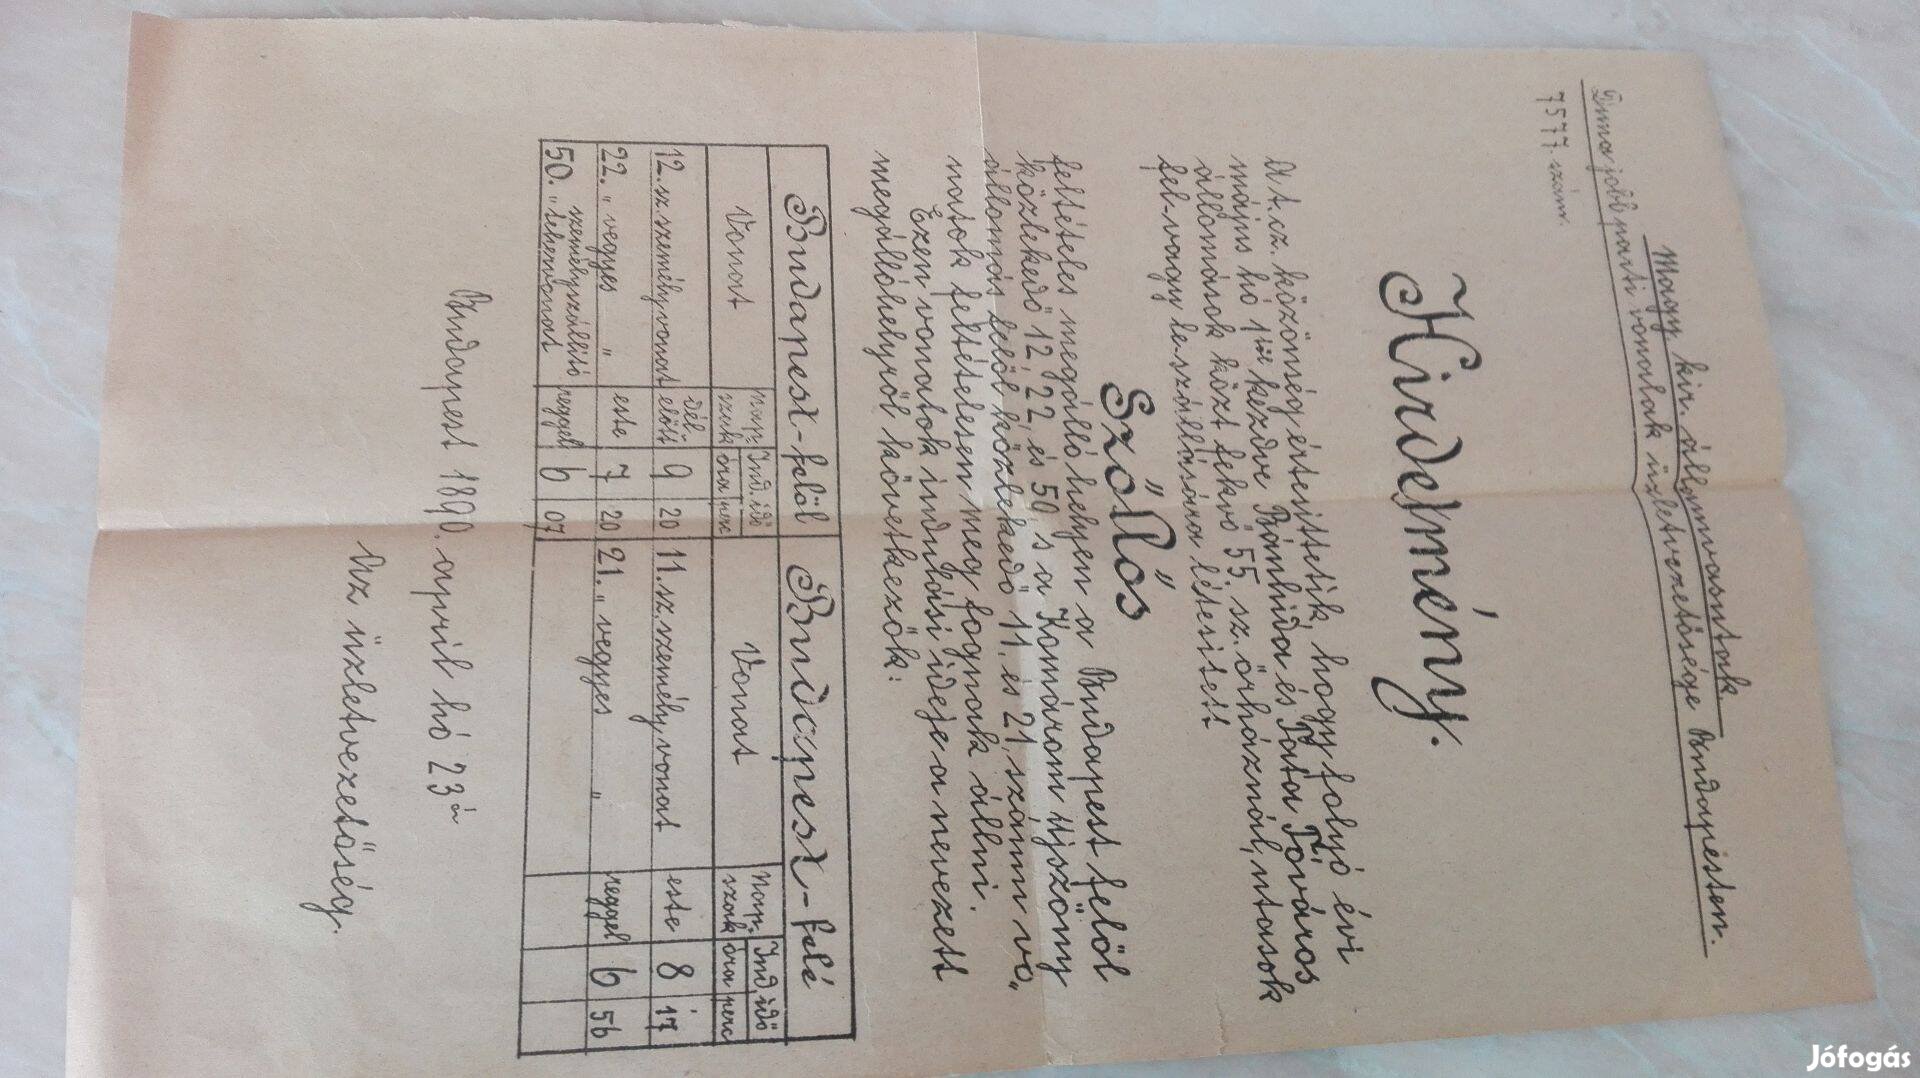 Magy. kir. államvasutak
Duna jobbparti vonalak üzletvezetősége Budapesten.
7577. szám.
Hirdetmény.
A t. cz. közönség értesíttetik, hogy folyó évi
május hó 1től kezdve Bánhida és Tata Tóváros
állomások közt fekvő 55. sz. őrháznál, utasok
fel- vagy leszállítására létesített
Szőllős
feltételes megálló helyen a Budapest felől
közlekedő 12, 22, és 50 s a Komárom Ujszőny
állomás felől közlekedő 11, és 21, számu vo„
natok feltételesen meg fognak állni.
Ezen vonatok indulási ideje a nevezett
megállóhelyről következők:
Budapest-felől Budapest-felé
Vonat Nap. szak Ind. idő óra perc Vonat Nap. szak Ind. idő óra perc
12. sz. személyvonat dél. előtt 9 20 11. sz. személyvonat este 8 17
22. „ vegyes „ este 7 20 21. „ vegyes „ reggel 6 56
50. „ személyszállító tehervonat reggel 6 07
Budapest 1890. april hó 23án
Az üzletvezetőség.
Jófogás